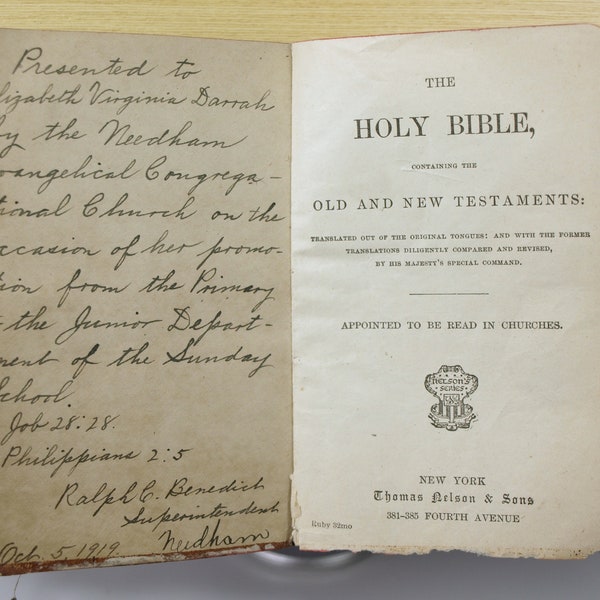 Presented to
Elizabeth Virginia Darrah
by the Needham
Evangelical Congrega-
tional Church on the
occasion of her promo-
tion from the Primary
to the Junior Depart-
ment of the Sunday
School.
Job 28:28.
Philippians 2:5
Ralph C. Benedict
Superintendent
Needham
Oct. 5, 1919.
THE
HOLY BIBLE,
CONTAINING THE
OLD AND NEW TESTAMENTS:
TRANSLATED OUT OF THE ORIGINAL TONGUES: AND WITH THE FORMER
TRANSLATIONS DILIGENTLY COMPARED AND REVISED,
BY HIS MAJESTY'S SPECIAL COMMAND.
APPOINTED TO BE READ IN CHURCHES.
NELSON'S
SERIES
NEW YORK
Thomas Nelson & Sons
381-385 FOURTH AVENUE
Ruby 32mo